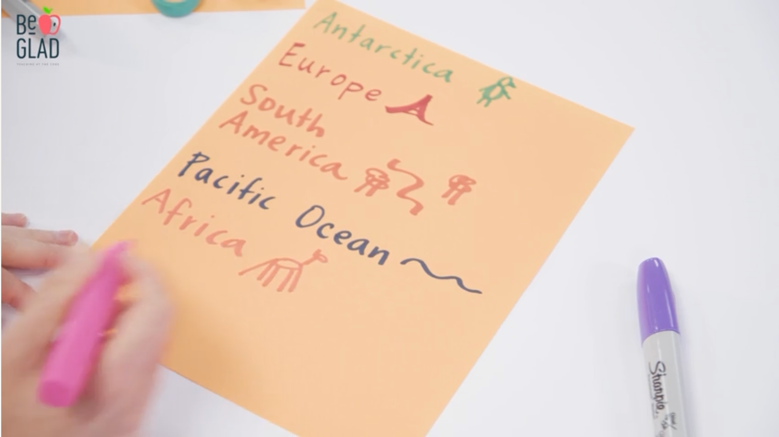 Be
GLAD
Antarctica
Europe
South
America
Pacific Ocean
Africa
Sharpie